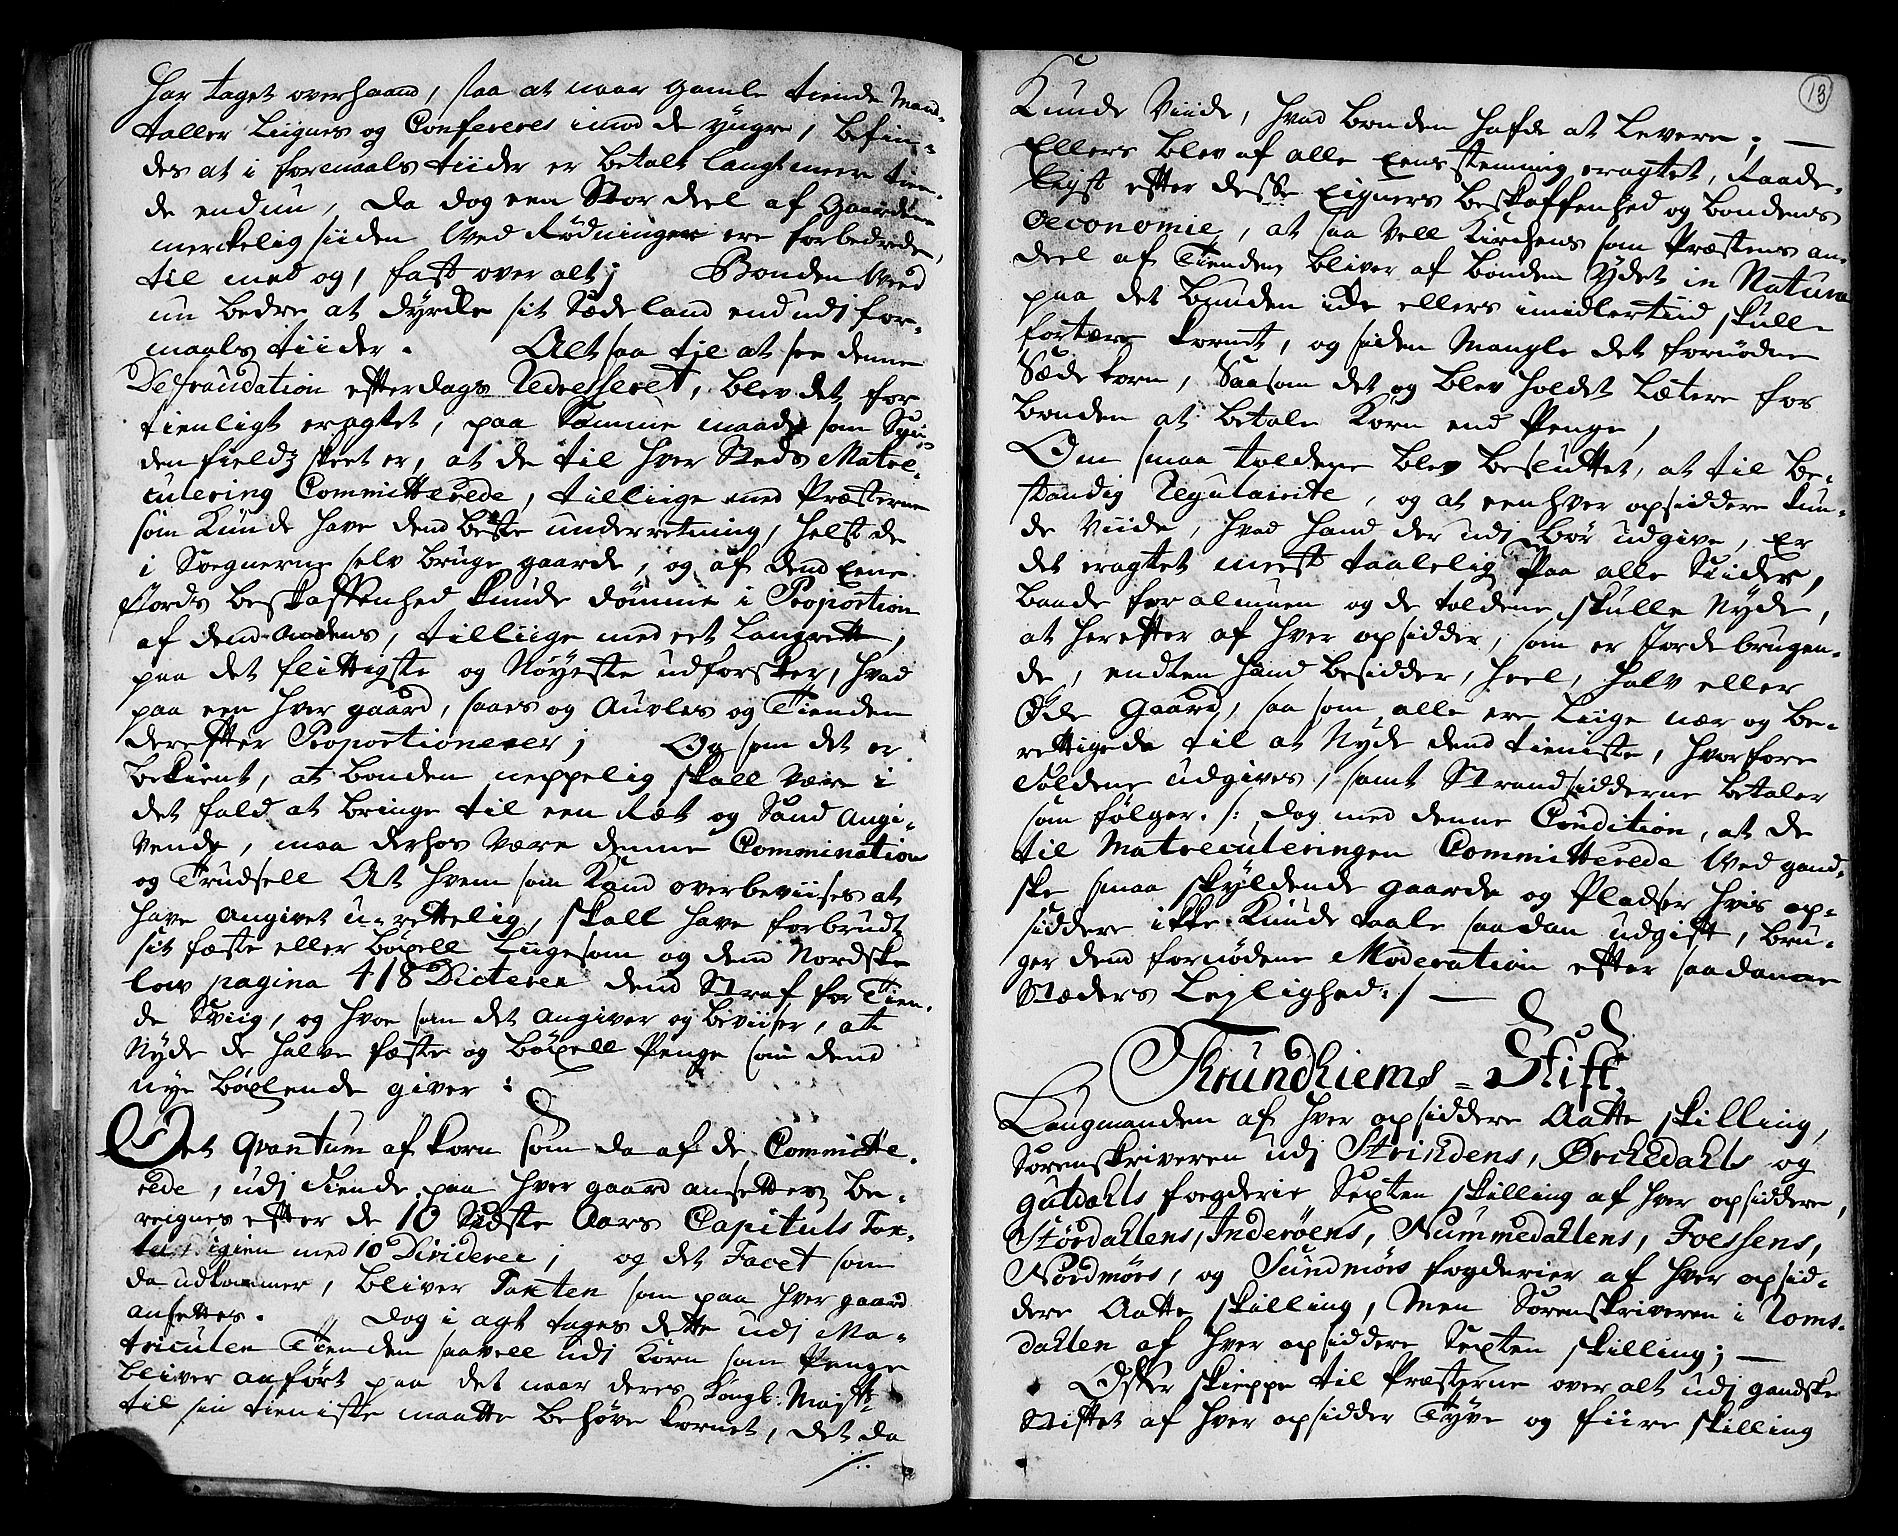 har taget overhaand, saa at naar gamle tiende Mand-
taller Liignes og Confereres imod de yngre, befin-
des at i formaals tiider er betalt langt meere tien-
de end nu, da dog een Stor deel af gaardene
merckelig siiden Ved Rødninger ere forbedrede,
til med og, fast over alt; Bonden Veed
nu bedre at dyrcke sit Sædeland end udj for-
maals tiider. Alt saa til at see denne
Defraudation efterdags Redresseret, blev det for
tienligt eragtet, paa Samme maade som Syn-
denfieldz skeet er, at de til hver Steds Matri-
culering Committerede, tilliige med Præsterne
som Kunde have dend beste underretning, helst de
i Sognerne selv bruge gaarde, og af dend Eene
Jords beskaffenhed kunde dømme i Proportion
af dend Andens, tilliige med eet Laugrett,
paa det flittigste og Nøyeste udforsker, hvad
paa een hver gaard, saaes og Aufles og Tienden
derefter Proportionerer; Og som det er
bekient, at bonden neppelig skall være i
det fald at bringe til een Ræt og Sand Angi-
vende, maa derhos være denne Commination
og Trudsell At hvem som Kand overbeviises at
have angivet u-rettelig, skall have forbrudt
sit fæste eller bøxell Liigesom og dend Nordske
lov pagina 418 Dicterer dend Straf for Tien-
de Sviig, og hvo som det angiver og beviiser, at
Nyde de halve fæste og bøxell Penge som dend
nye bøxlende giver:
Det Qvantum af korn som da af de Committe-
rede, udj tiende paa hver gaard ansettes, be-
reignes efter de 10 Sidste Aars Capituls Tax-
ter igien med 10 Dividerer; og det Facet som
da udkommer, bliver Taxten som paa hver gaard
ansettes. Dog i agt tages dette udj Ma-
triculen Tienden saavell udj Korn som Penge
bliver anført paa det naar deres Kongl: Majtt:
til sin tieniste maatte behøve kornet, det da
13
Kunde Viide, hvad bonden hafde at Levere; —
Ellers blev af alle Eensstemmig eragtet, Raade-
ligst efter desse Eigners beskaffenhed og bondens
oeconomie, at saa vell Kirchens som Præstens an-
deel af Tienden bliver af bonden ydet in Natura
paa det bonden icke ellers imidlertiid skulle
fortære kornet, og siden Mangle det fornødne
Sæde korn, Saasom det og blev holdet Lætere for
bonden at betale Korn end Penge,
Om smaa toldene blev besluttet, at til be-
standig Regularite, og at een hver opsiddere kun-
de Viide, hvad hand der udj bør udgive, Er
det eragtet meest taalelig Paa alle Siider,
baade for almuen og de toldene skulle Nyde,
at herefter af hver opsidder, som er Jorde brugen-
de, endten hand besidder, heel, halv eller
Øde gaard, saa som alle ere Liige nær og be-
rettigede til at Nyde dend tieniste, hvorfore
toldene udgives, samt Strandsidderne betaler
som følger. /: dog med denne Condition, at de
til Matreculeringen Committerede Ved gand-
ske smaa skyldende gaarde og Pladser hvis op-
siddere ikke Kunde taale saadan udgift, bru-
ger dend fornødene Moderation efter saadanne
Stæders Lejlighed: / —
Thrundhiems = Stift.
Laugmanden af hver opsiddere Aatte skilling,
Sorenskriveren udj Strindens, Ørchedahls og
guldahls fogderie Sexten skilling af hver opsiddere,
Størdahlens, Inderøens, Nummedahlens, Foessens,
Nordmørs, og Sundmørs fogderier af hver opsid-
dere Aatte skilling, Men Sorenskriveren i Roms-
dahlen af hver opsiddere Sexten skilling; —
Oster skieppe til Præsterne over alt udj gandske
Stiftet af hver opsidder Tyve og fiire skilling